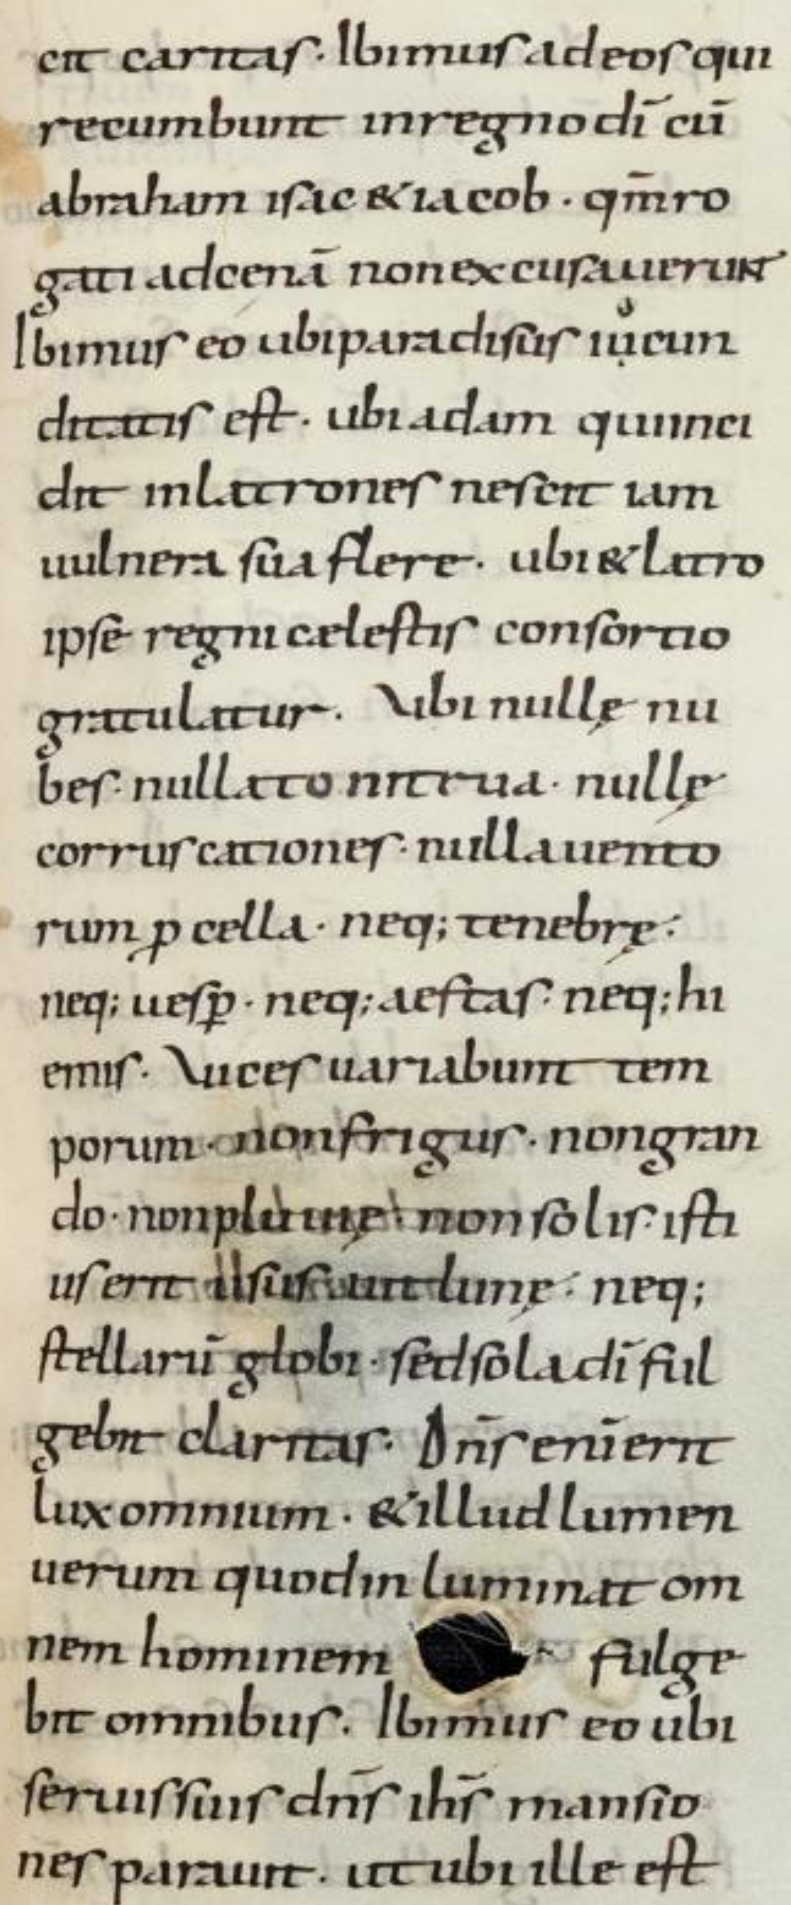 cit caritas. Ibimus ad eos qui
recumbunt in regno dī cū
abraham isac & iacob. qm̄ ro
gati ad cenā non excusauerunt
Ibimus eo ubi paradisus iucun
ditatis est. ubi adam qui inci
dit in latrones nescit iam
uulnera sua flere. ubi & latro
ipse regni cælestis consortio
gratulatur. Vbi nullę nu
bes. nulla tonitrua. nullę
corruscationes. nulla uento
rum ꝓcella. neq; tenebrę.
neq; uesꝑ. neq; aestas. neq; hi
emis. Vices uariabunt tem
porum. non frigus. non gran
do. non pluuię. non solis. isti
us erit usus aut lunę. neq;
stellarū globi. sed sola dī ful
gebit claritas. Dn̄s enī erit
lux omnium. & illud lumen
uerum quod inluminat om
nem hominem fulge
bit omnibus. Ibimus eo ubi
seruis suis dn̄s ih̄s mansio
nes parauit. ut ubi ille est